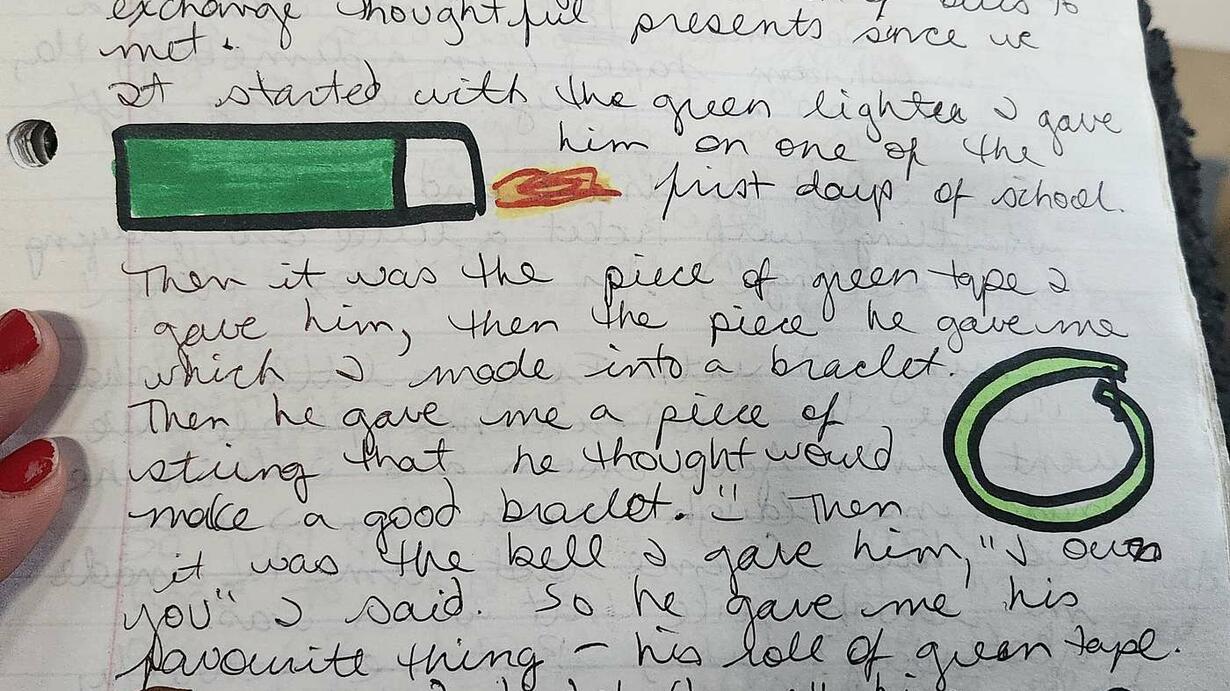 exchange thoughtful presents since we
met.
It started with the green lighter I gave
him on one of the
first days of school.
Then it was the piece of green tape I
gave him, then the piece he gave me
which I made into a braclet.
Then he gave me a piece of
string that he thought would
make a good braclet. :) Then
it was the bell I gave him, "I own
you" I said. So he gave me his
favourite thing - his roll of green tape.